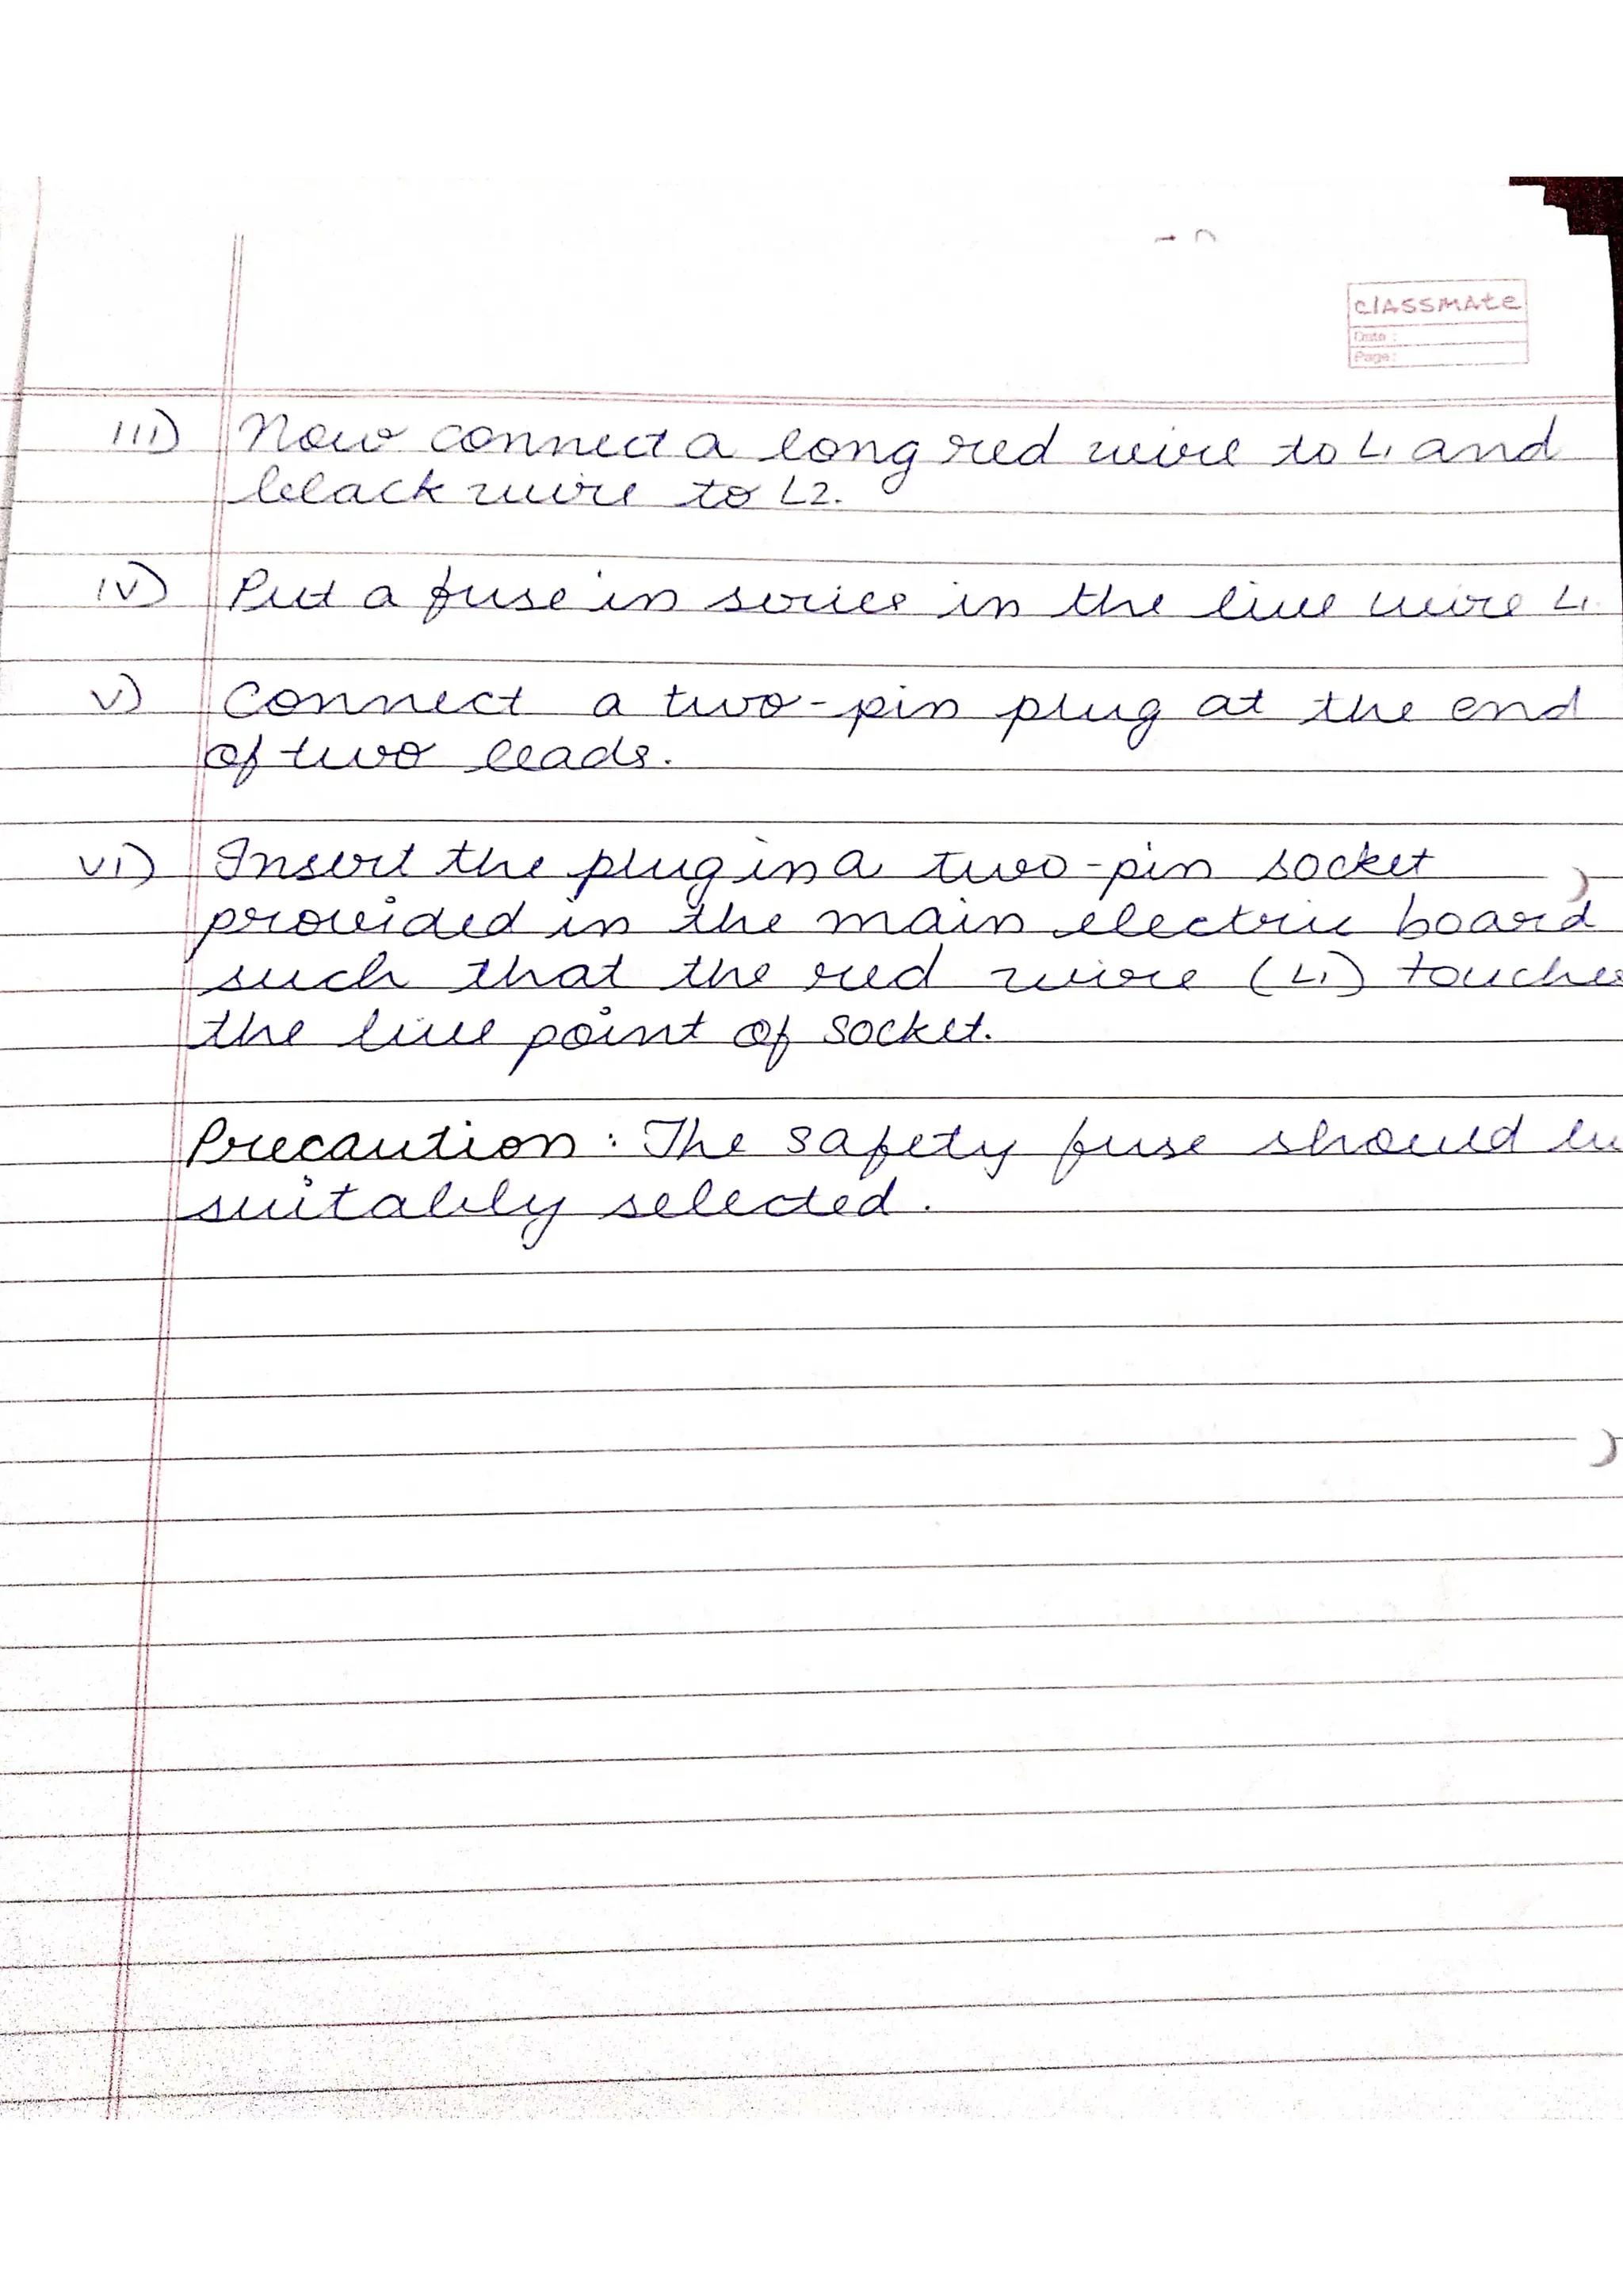 classmate
Date :
Page:
iii) Now connect a long red wire to L1 and
black wire to L2.
iv) Put a fuse in series in the live wire L1.
v) Connect a two-pin plug at the end
of two leads.
vi) Insert the plug in a two-pin socket
provided in the main electric board
such that the red wire (L1) touches
the live point of socket.
Precaution : The safety fuse should be
suitably selected.